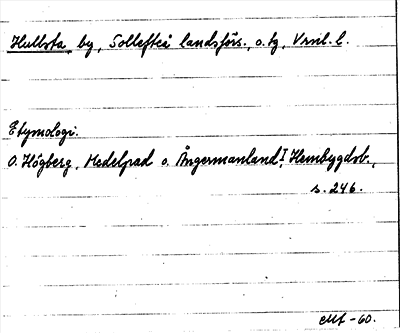 Hullsta, by, Sollefteå landsförs., o. tg, Vrnl. l.
Etymologi.
O. Högberg, Medelpad o. Ångermanland I, Hembygdsb.,
s. 246.
-60.